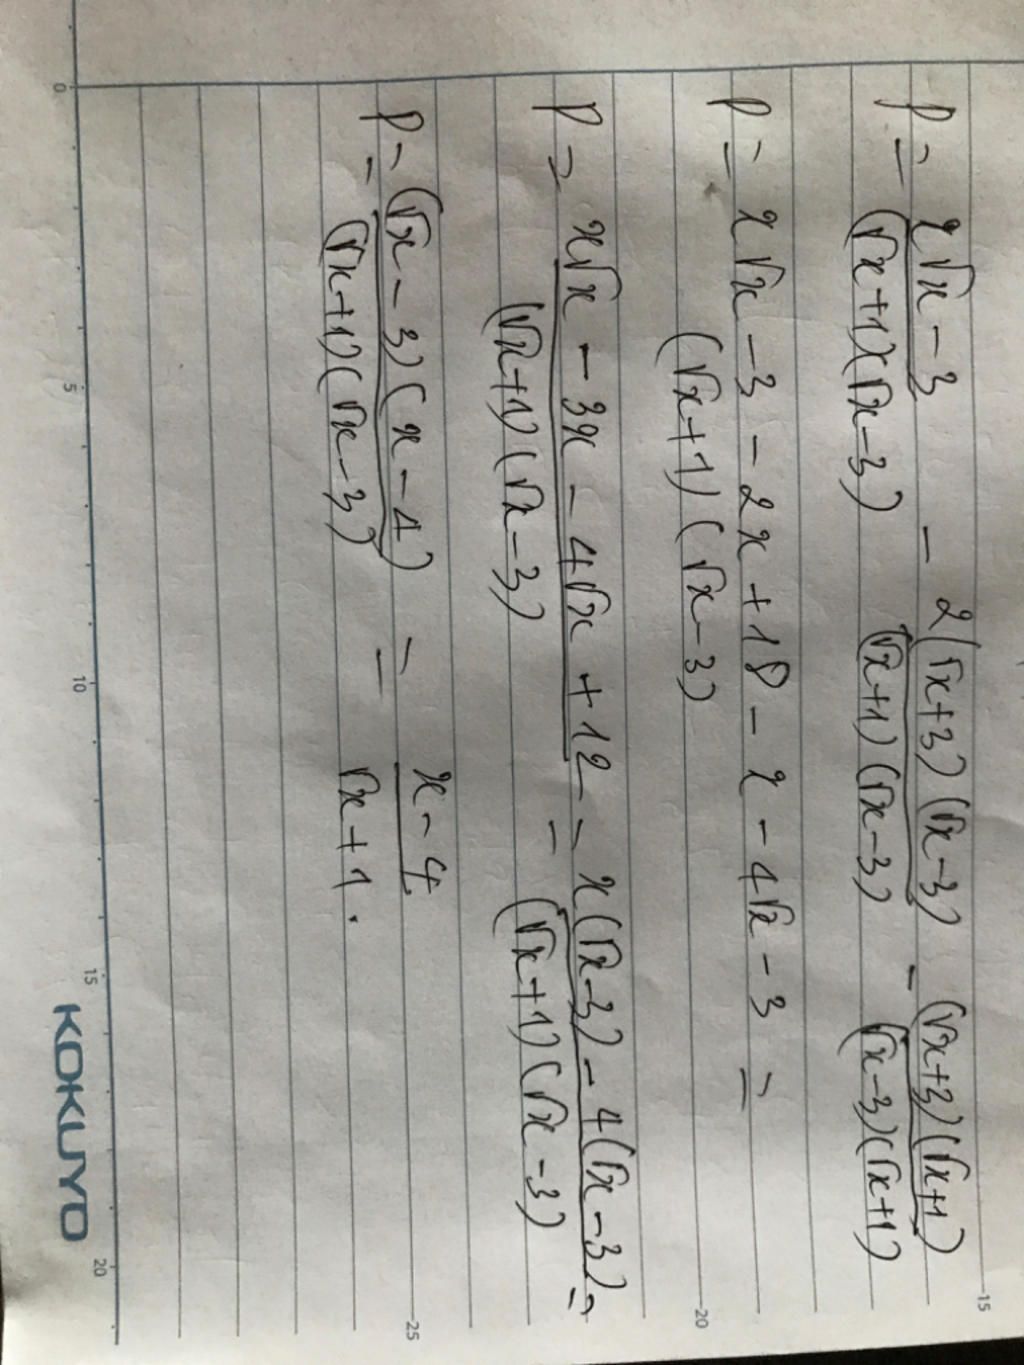 P = x√x - 3 / (√x+1)(√x-3) - 2(√x+3)(√x-3) / (√x+1)(√x-3) - (√x+3)(√x+1) / (√x-3)(√x+1)
P = x√x - 3 - 2x + 18 - x - 4√x - 3 / (√x+1)(√x-3) =
P = x√x - 3x - 4√x + 12 / (√x+1)(√x-3) = x(√x-3) - 4(√x-3) / (√x+1)(√x-3) =
P = (√x-3)(x-4) / (√x+1)(√x-3) = x-4 / √x+1.
0 5 10 15 20
15 20 25
KOKUYO